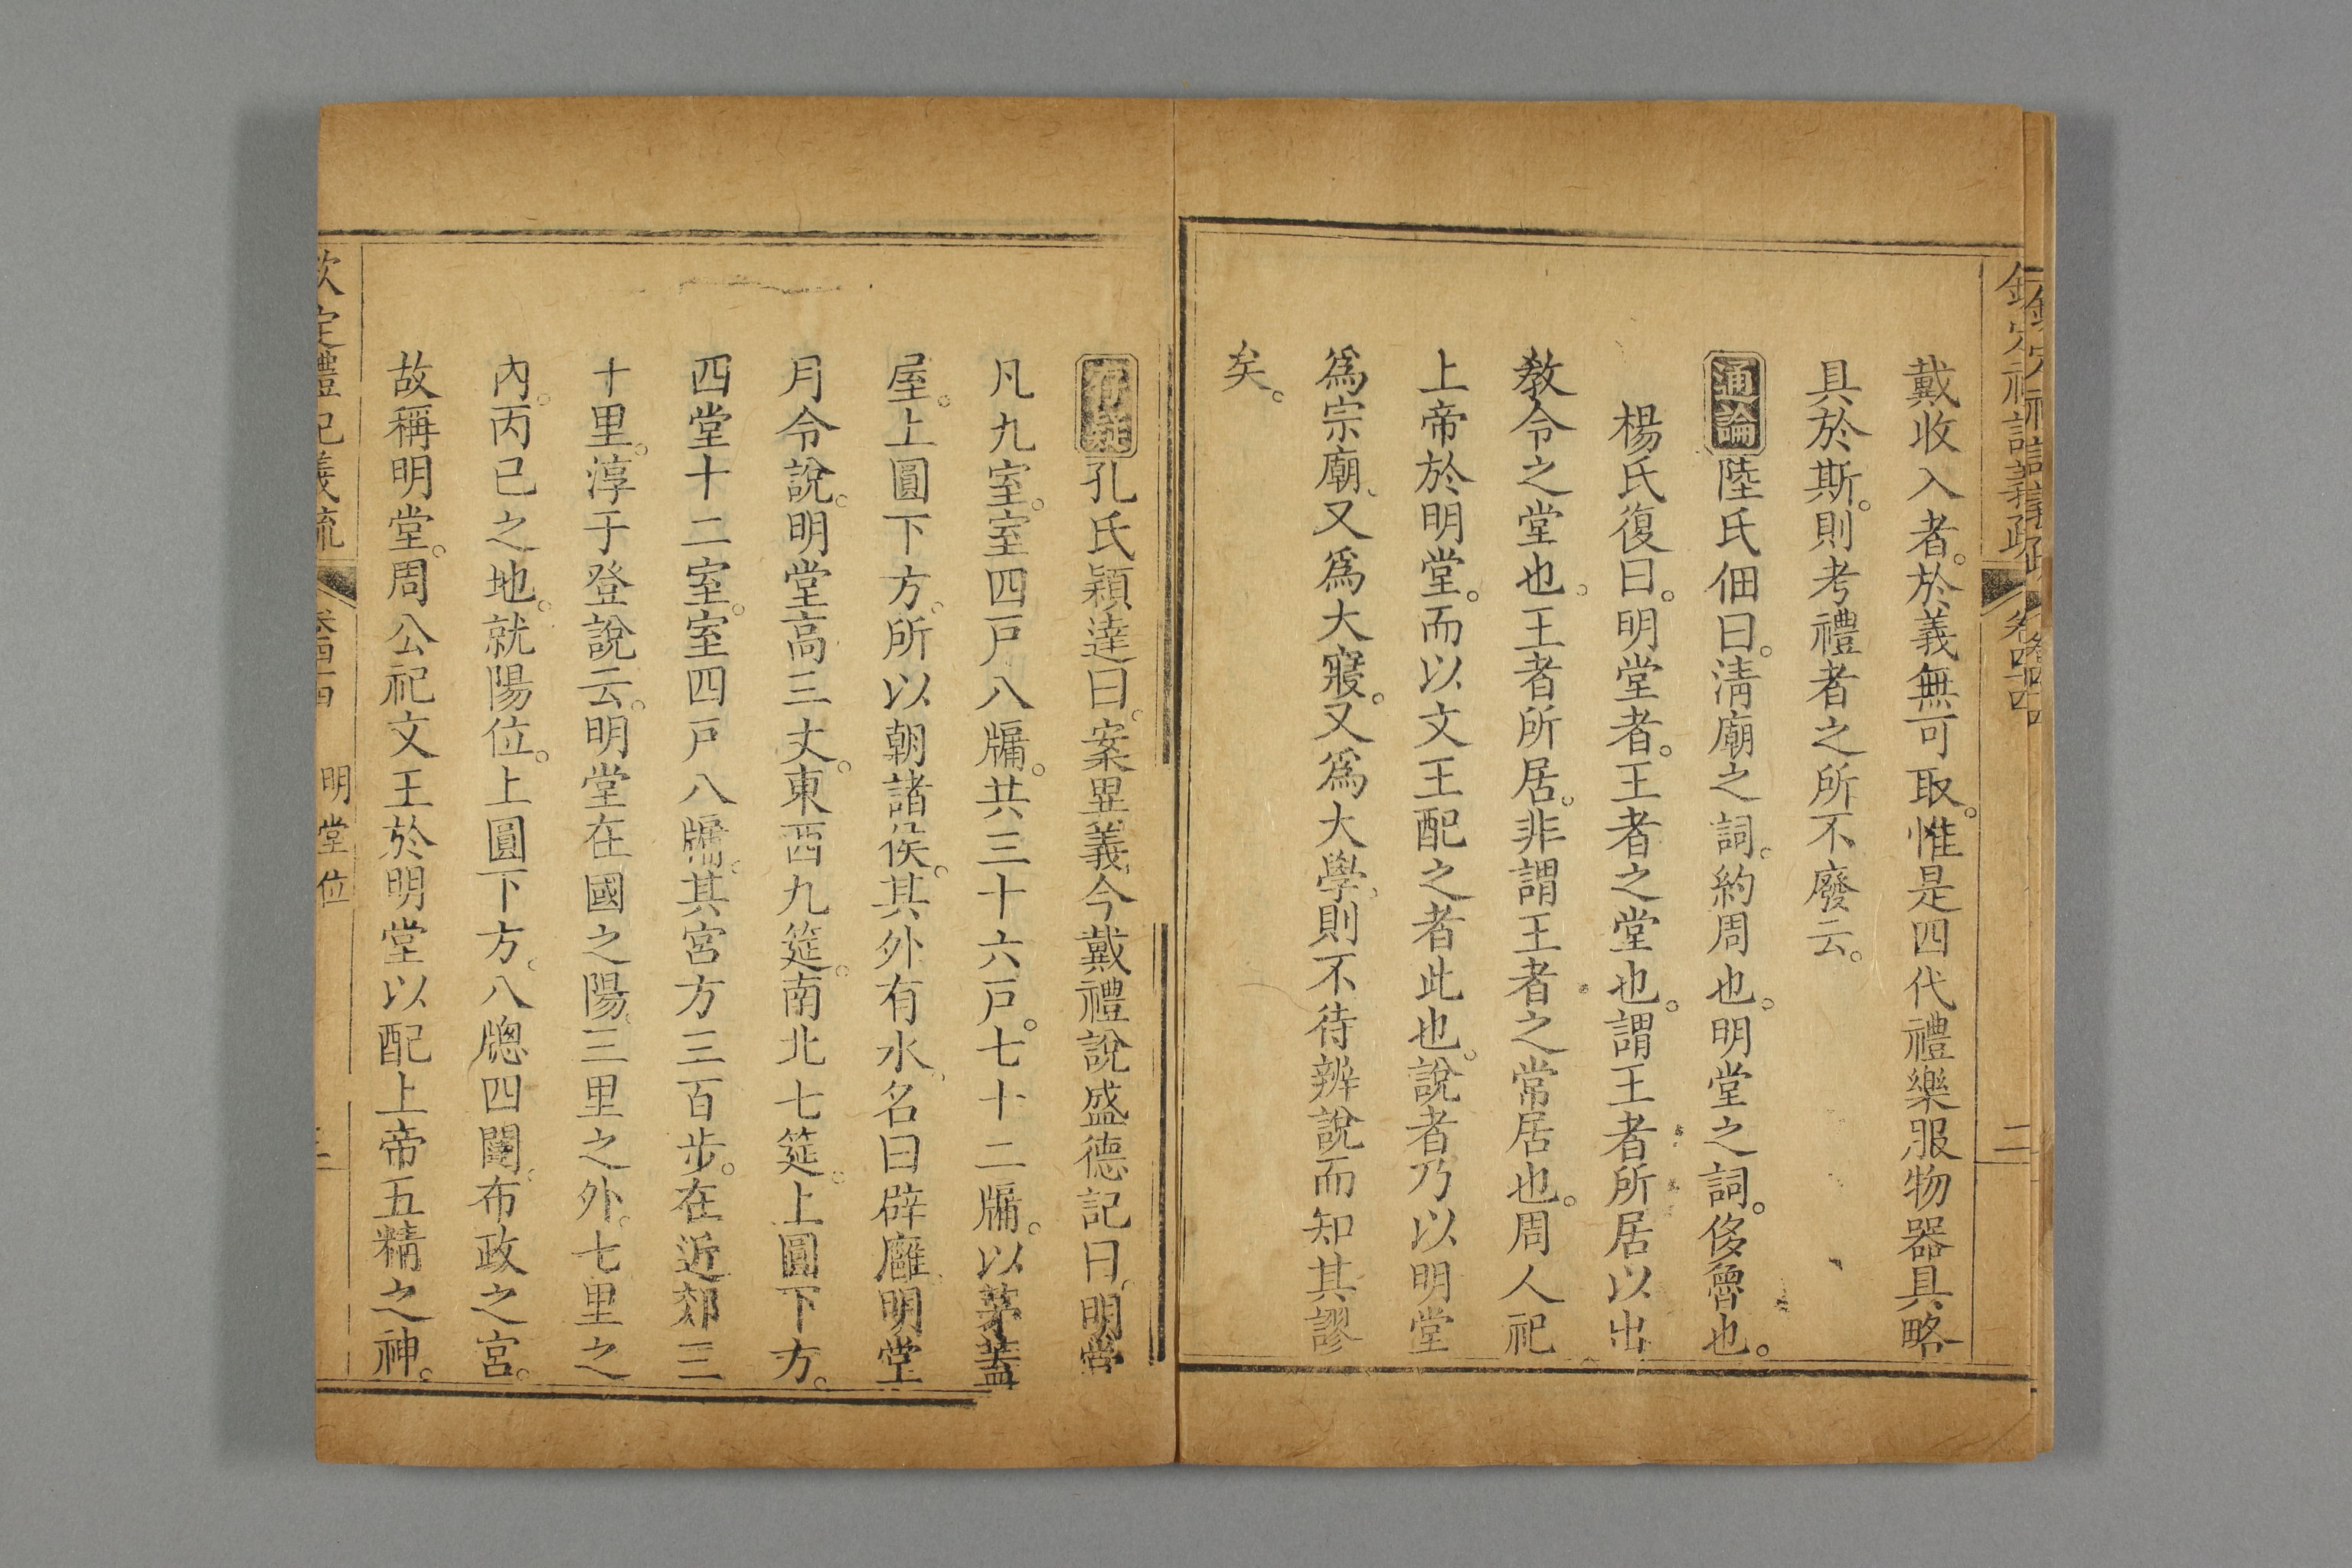 戴收入者。於義無可取。惟是四代禮樂服物器具略
具於斯。則考禮者之所不廢云。
通論陸氏佃曰。淸廟之詞。約周也。明堂之詞。侈魯也。
楊氏復曰。明堂者。王者之堂也。謂王者所居以出
敎令之堂也。王者所居。非謂王者之常居也。周人祀
上帝於明堂。而以文王配之者此也。說者乃以明堂
爲宗廟、又爲大寢。又爲大學、則不待辨說而知其謬
矣。
存疑孔氏穎達曰。案異義、今戴禮說盛德記曰、明堂
凡九室。室四戸八牖。共三十六戸。七十二牖。以茅蓋
屋。上圓下方。所以朝諸侯。其外有水、名曰辟廱。明堂
月令說。明堂高三丈。東西九筵。南北七筵。上圓下方。
四堂十二室。室四戸八牖。其宮方三百步。在近郊三
十里。淳于登說云。明堂在國之陽、三里之外。七里之
內。丙巳之地。就陽位。上圓下方。八牕四闥、布政之宮。
故稱明堂。周公祀文王於明堂以配上帝五精之神。
欽定禮記義疏 卷四十四 明堂位